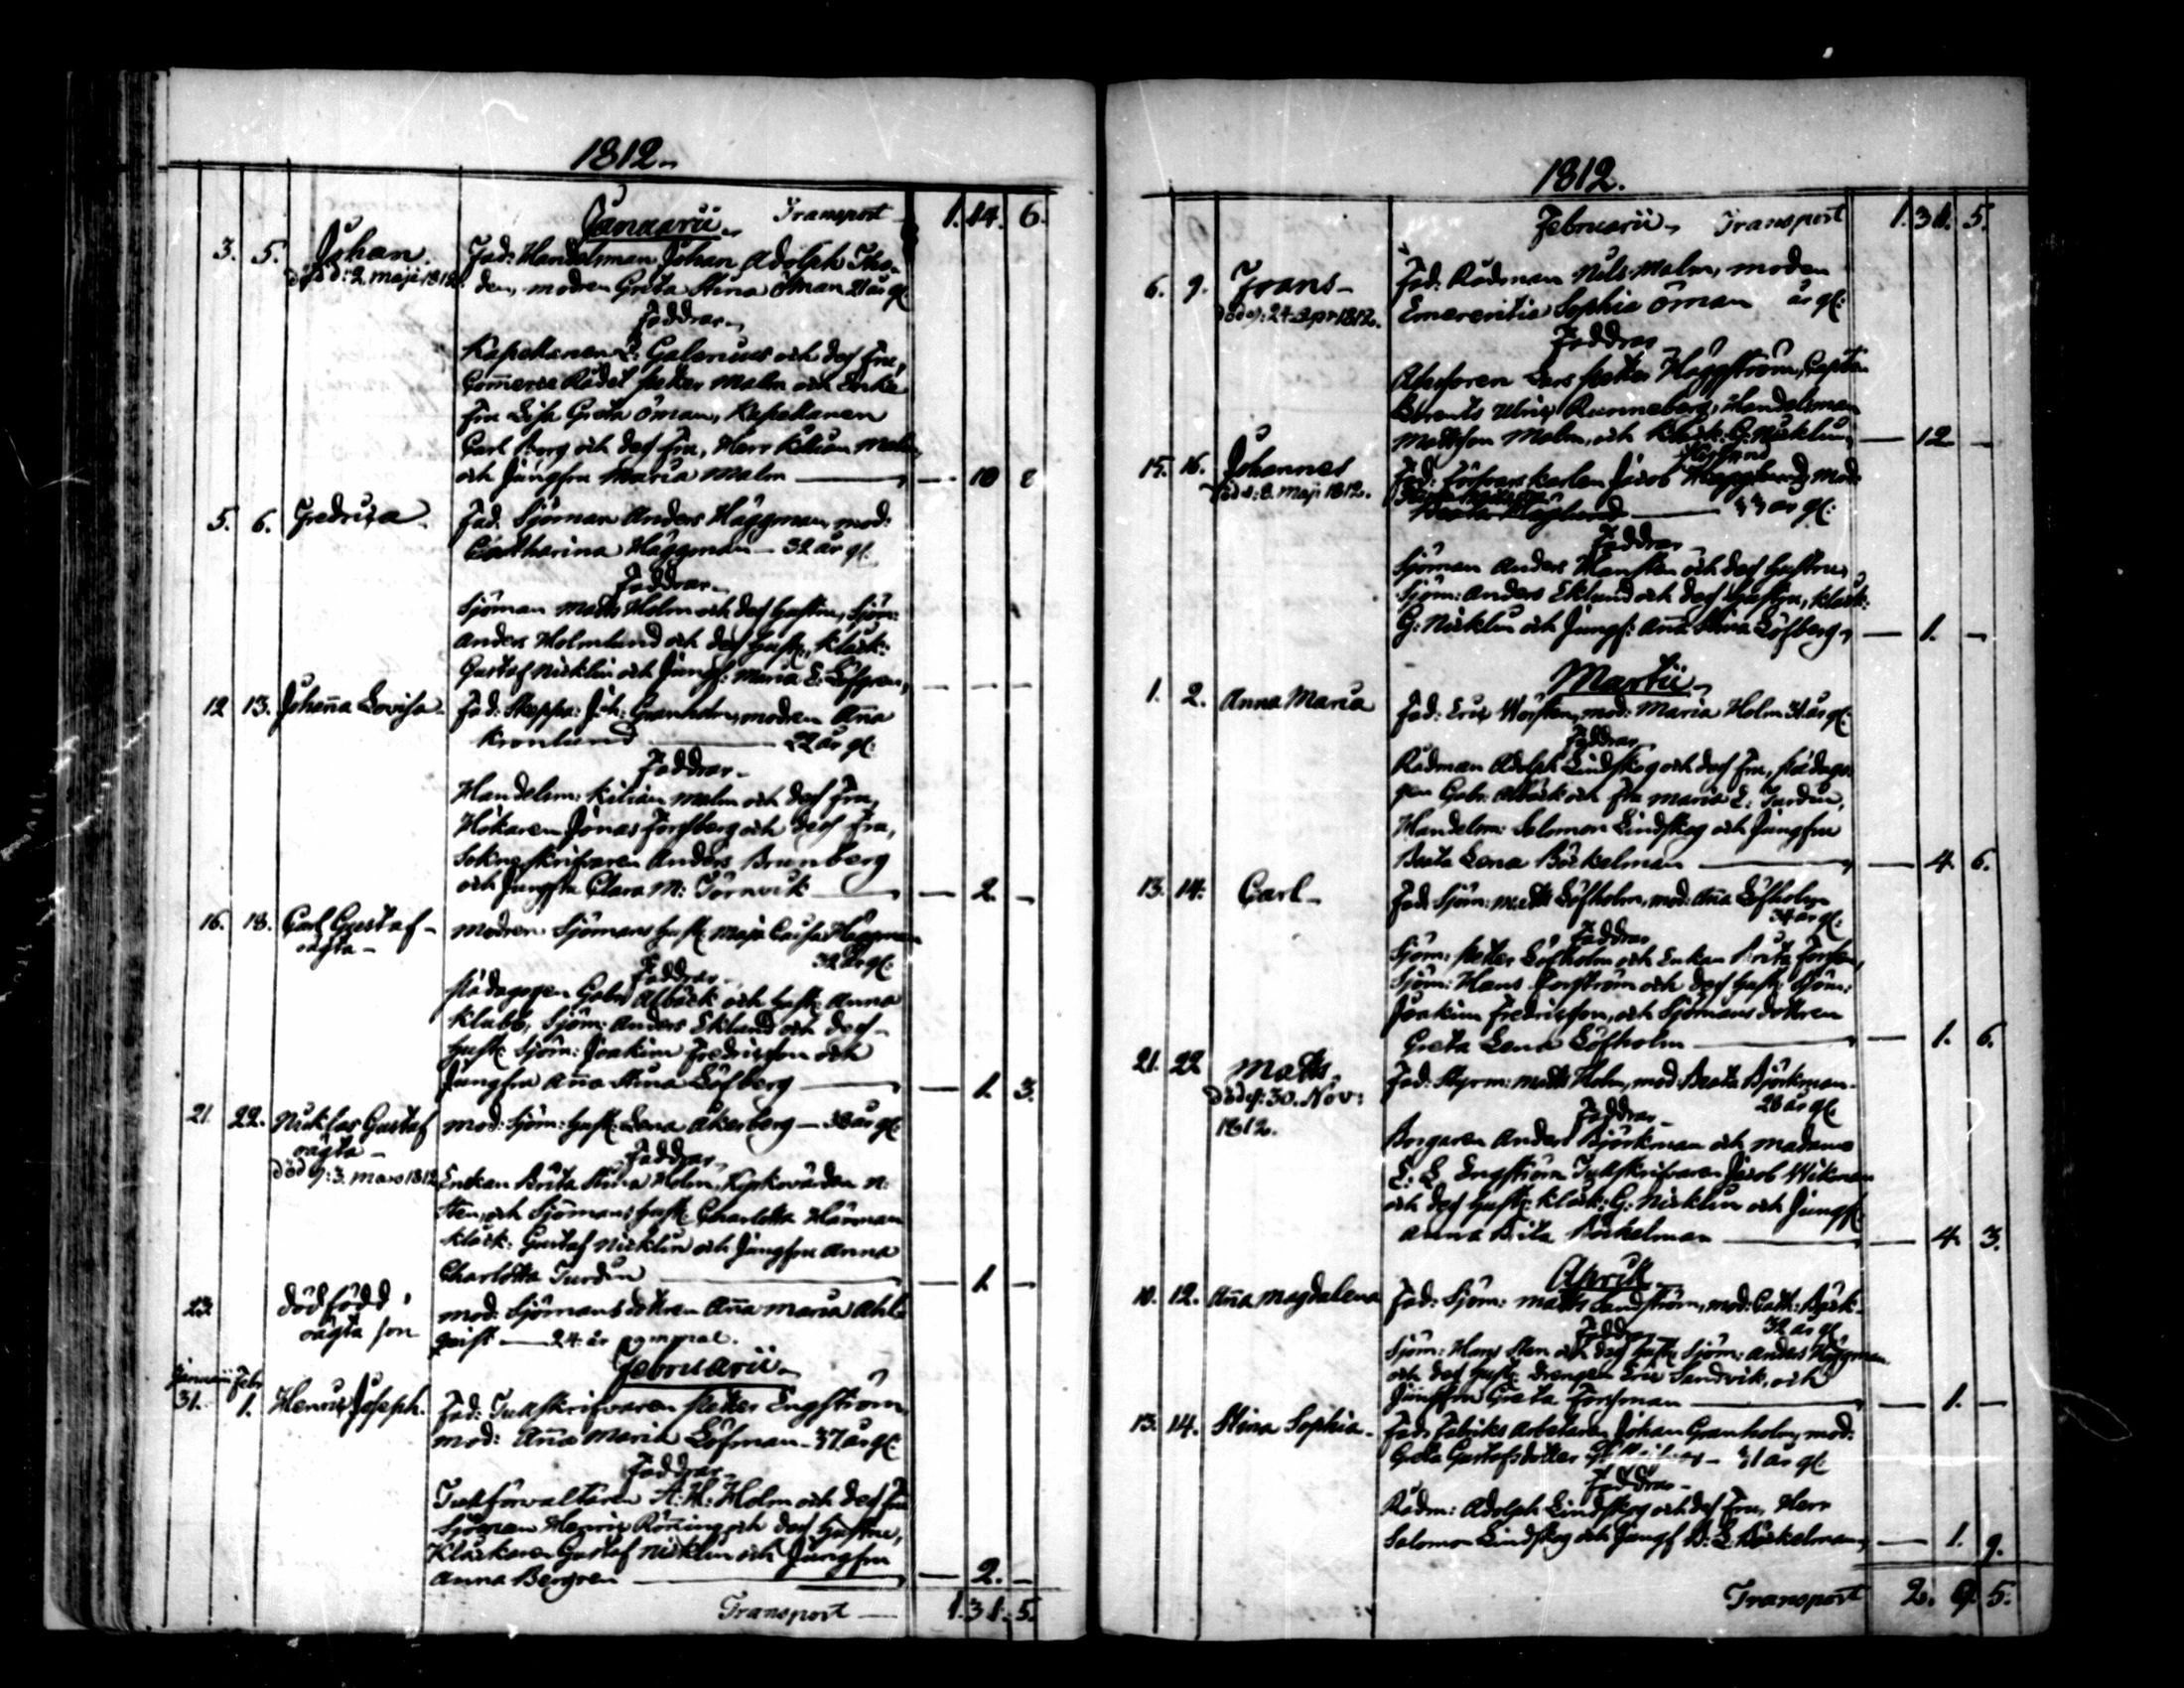 1812.
Januarii. Transport 1. 14. 6.
3. 5. Johan. Fad: Handelsman Johan Adolph
död d: 2. Maji 1812. den, modren Greta Stina Öman 21 år gl:
Faddrar.
Kapellanen E: Galenius och dess Fru,
Commerce Rådet Petter Malm och Enke
Fru Lisa Greta Öman, Kapellanen
Carl Borg och dess Fru, Herr Kilian Malm
och Jungfru Maria Malm — 10 8
5. 6. Fredrica. Fad. Sjöman Anders Häggman, mod:
Catharina Häggman — 32 år gl.
Faddrar.
Sjöman Matts Holm och dess hustru, Sjöm:
Anders Holmlund och dess hustr, Klock:
Gustaf Nicklin och Jungf: Maria E: Löfgren, — — —
12 13. Johanna Lovisa. Fad: Skeppa: Joh: Granholm, modren Anna
Kronlund — 22 år gl:
Faddrar.
Handelsm: Kilian Malm och dess Fru,
Hökaren Jonas Forssberg och dess Fru,
Sokneskrifvaren Anders Brunberg
och Jungfru Clara M: Törnvik — 2. —
16. 18. Carl Gustaf — modren Sjömans hust: Maja Caisa Häggman
oägta — 32 år gl:
Faddrar.
Pädagogen Gabr Albäck och hustr: Anna
Klubb, Sjöm: Anders Eklund och dess
hustr: Sjöm: Joakim Fredricsson och
Jungfru Anna Stina Löfberg — 1. 3.
21. 22. Nicklas Gustaf mod: Sjöm: hustr: Lena Åkerberg — 38 år gl:
oägta — Faddrar.
död d: 3. Mars 1812 Enkan Brita Stina Holm, Kyrkovärden N:
Sten, och Sjömans hustr. Charlotta Härman
Klock: Gustaf Nicklin och Jungfru Anna
Charlotta Turdin — 1. —
23. dödfödd, mod: Sjömansdottren Anna Maria Ahl-
oägta son qvist — 24 år gammal.
Februarii.
Januarii Febr
31. 1. Henric Joseph. Fad: Tullskrifvaren Petter Engström,
mod: Anna Maria Löfman — 37 år gl:
Faddrar.
Tullförvaltaren A: H: Holm och dess Fru
Sjöman Henric Röring och dess hustru,
Klockaren Gustaf Nicklin och Jungfru
Anna Bergren — 2. —
Transport — 1. 31. 5.
1812.
Februarii. Transport 1. 31. 5.
6. 9. Frans — Fad: Rådman Nils Malm, modren
död d: 24 Apr 1812. Emerentia Sophia Öman år gl:
Faddrar
Assessoren Lars Petter Häggström, Capten
Berents Ulric Runneberg, Handelsman
Mattsson Malm, och Klock: G: Nicklin, — 12 —
15. 16. Johannes Fad: Jacob mod:
död d: 8. Maji 1812. 33 år gl:
Faddrar.
Sjöman Anders Hansten och dess hustru,
Sjöm: Anders Eklund och dess hustru, Klock:
G: Nicklin och Jungf: Anna Stina Löfberg, — 1. —
Martii.
1. 2. Anna Maria Fad: Eric mod: Maria Holm 31 år gl:
Faddrar
Rådman Adolph Lindskog och dess Fru, Pädago-
gen Gabr: Albäck och Fru Maria E: Turdin,
Handelsm: Salomon Lindskog och Jungfru
Beata Lena Böckelman — 4. 6.
13. 14. Carl — Fad: Sjöm: Matts Löfholm, mod: Anna Löfholm
34 år gl:
Faddrar
Sjöm: Petter Löfholm och Enkan Brita Forssen,
Sjöm: Hans Forsström och dess hustr: Sjöm:
Joakim Fredricsson, och Sjömansdottren
Greta Lena Löfholm — 1. 6.
21. 22 Matts. Fad: Styrm: Matts Holm, mod: Beata Björkman.
död d: 30. Nov: 28 år gl.
1812. Faddrar.
Borgaren Anders Björkman och Madame
E: E. Engström Tullskrifvaren Jacob Wikman
och dess hustr: Klock: G: Nicklin och Jungf:
Anna Brita Böckelman — 4. 3.
Aprill.
10. 12. Anna Magdalena Fad: Sjöm: Matts Sandström, mod: Cath: Bäck.
32 år gl
Faddr
Sjöm: Hans Sten och dess hustr: Sjöm: Anders Häggman
och dess hustr: drengen Eric Sandvik, och
Jungfru Greta Forssman — 1. —
13. 14. Stina Sophia. Fad: Fabriks Arbetaren Johan Granholm, mod:
Greta Gustafsdotter — 31 år gl:
Faddrar.
Rådm: Adolph Lindskog och dess Fru, Herr
Salomon Lindskog och Jungf B: L: Böckelman, — 1. 9.
Transport 2. 9. 5.